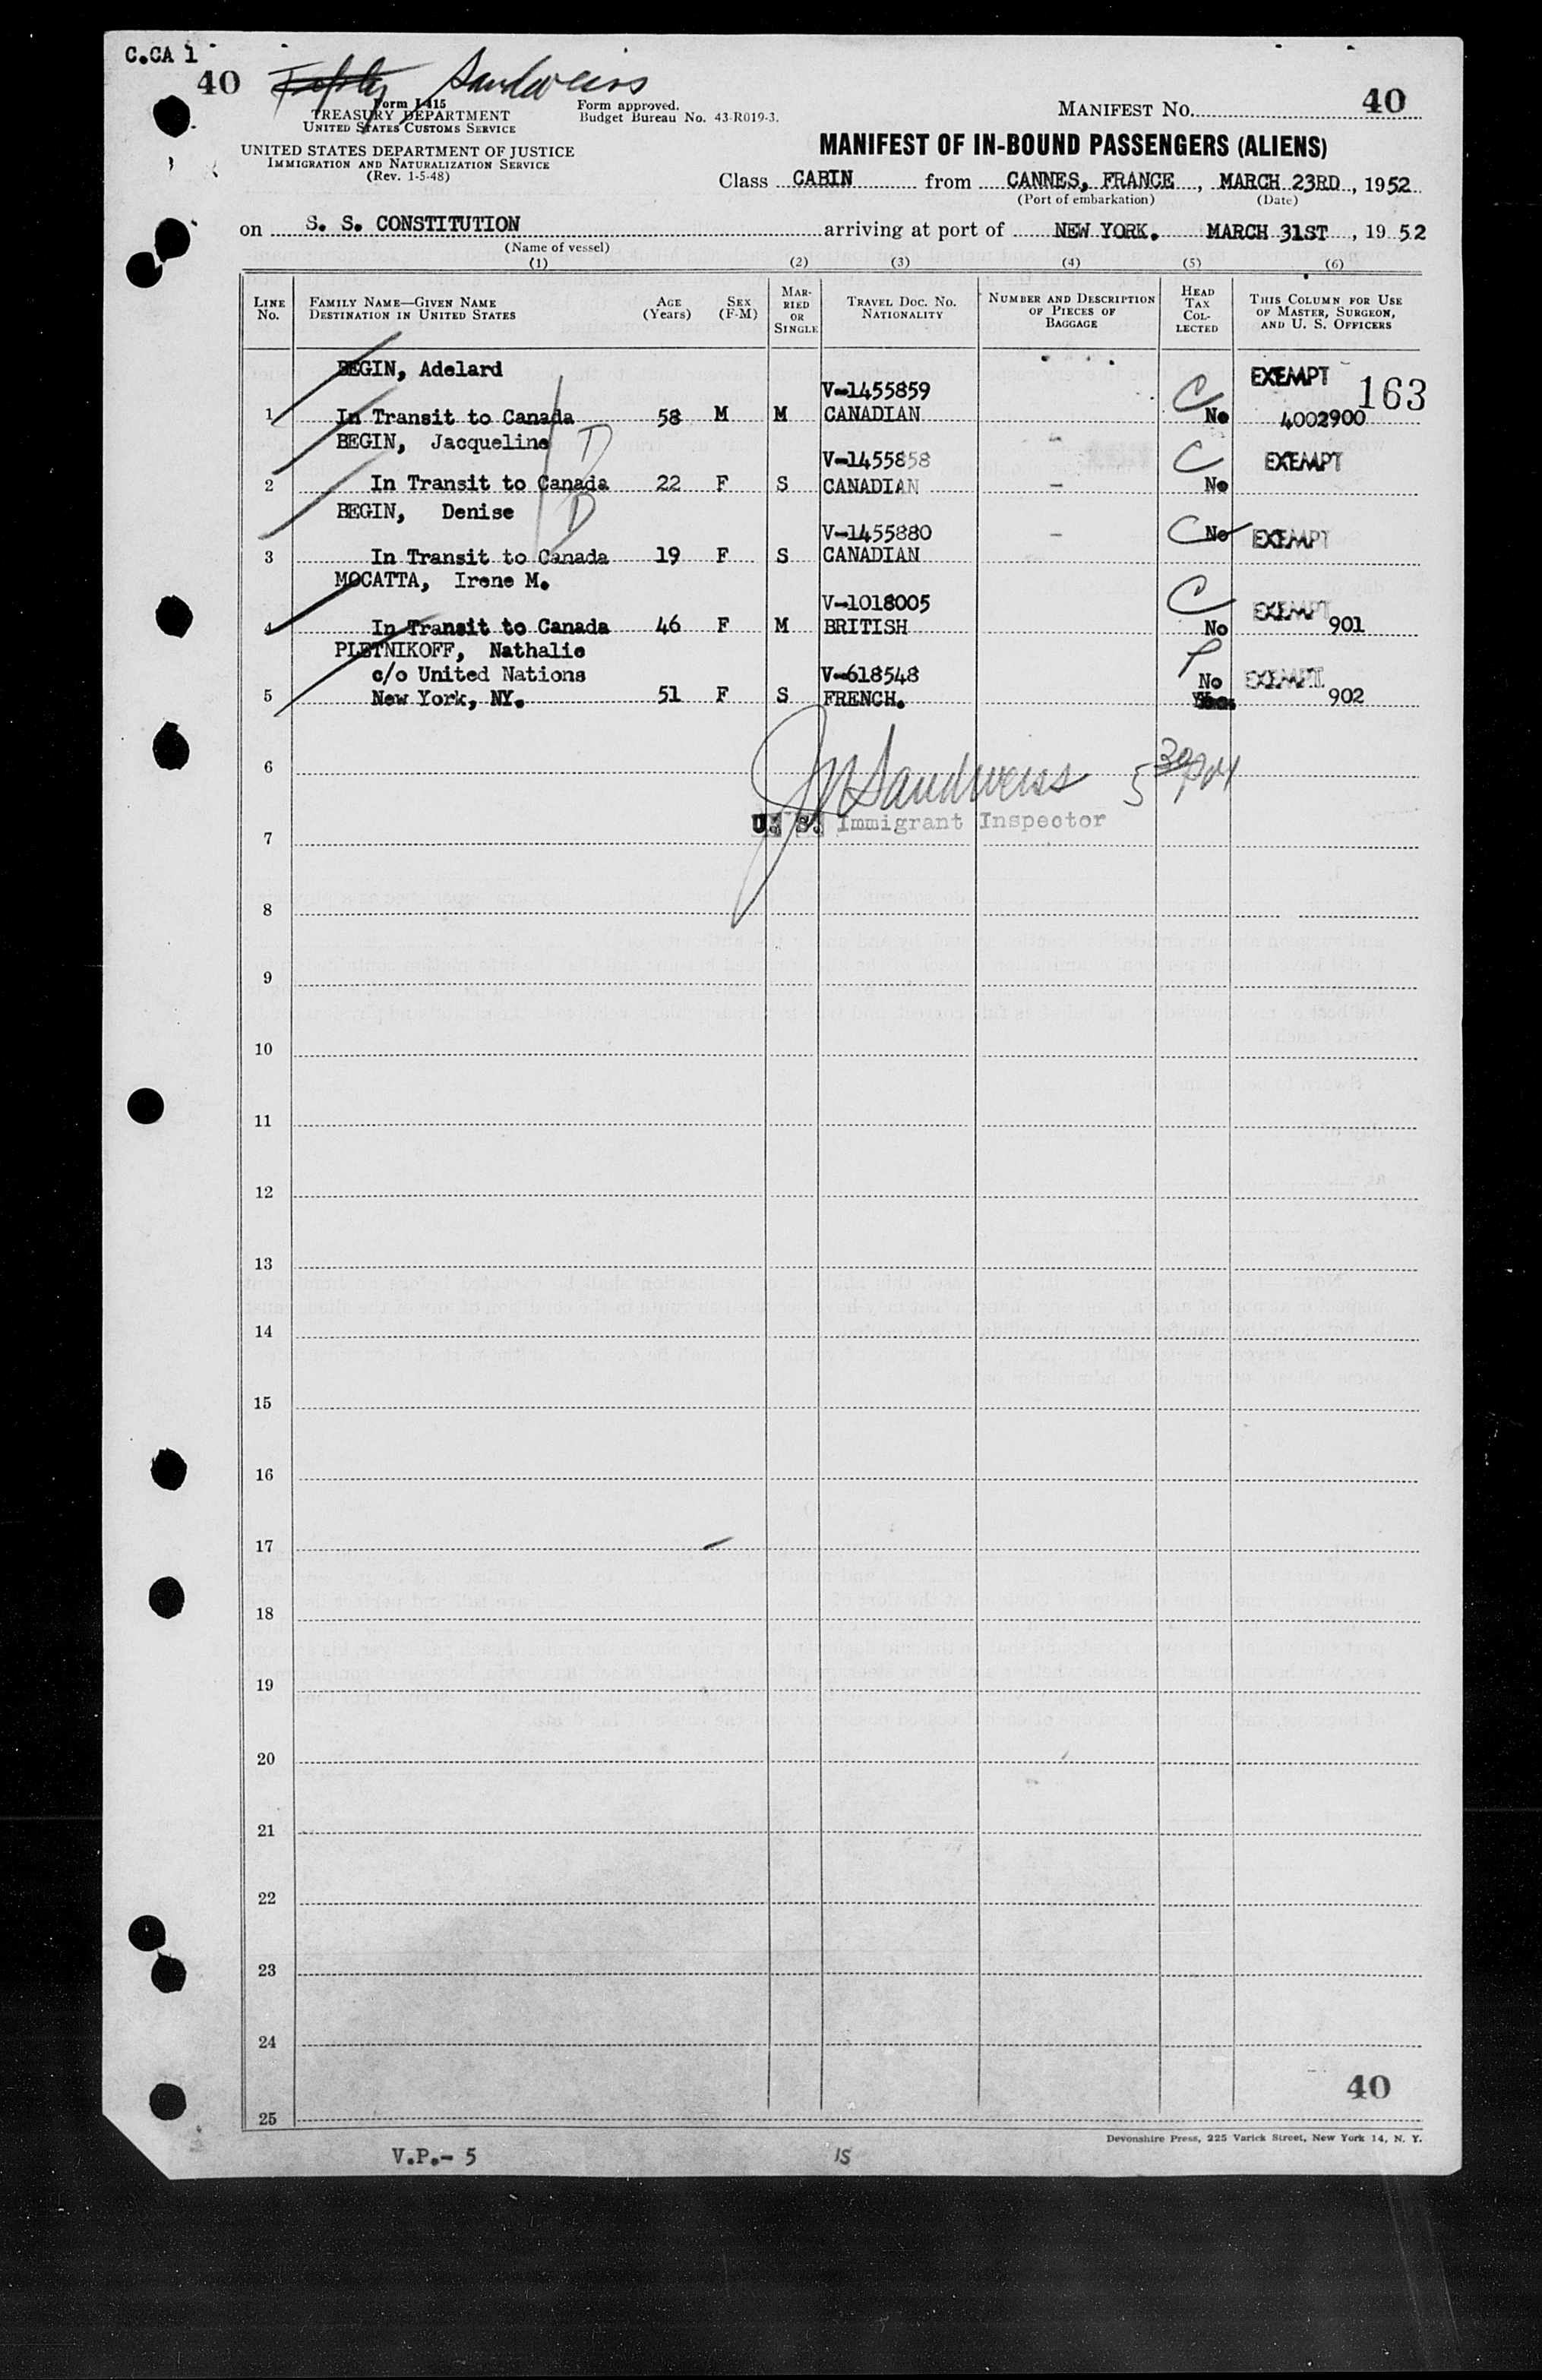 C.CA 1
40 Sandweiss
Form I-415
TREASURY DEPARTMENT
UNITED STATES CUSTOMS SERVICE
Form approved.
Budget Bureau No. 43-R019-3.
MANIFEST No. 40
UNITED STATES DEPARTMENT OF JUSTICE
IMMIGRATION AND NATURALIZATION SERVICE
(Rev. 1-5-48)
MANIFEST OF IN-BOUND PASSENGERS (ALIENS)
Class CABIN from CANNES, FRANCE, MARCH 23RD, 1952
(Port of embarkation) (Date)
on S. S. CONSTITUTION arriving at port of NEW YORK. MARCH 31ST, 1952
(Name of vessel)
(1) (2) (3) (4) (5) (6)
LINE No. FAMILY NAME—GIVEN NAME DESTINATION IN UNITED STATES AGE (Years) SEX (F-M) MARRIED OR SINGLE TRAVEL DOC. NO. NATIONALITY NUMBER AND DESCRIPTION OF PIECES OF BAGGAGE HEAD TAX COLLECTED THIS COLUMN FOR USE OF MASTER, SURGEON, AND U. S. OFFICERS
BEGIN, Adelard V-1455859 C EXEMPT 163
1 In Transit to Canada 58 M M CANADIAN No 4002900
BEGIN, Jacqueline D V-1455858 C EXEMPT
2 In Transit to Canada 22 F S CANADIAN - No
BEGIN, Denise D V-1455880 - C No EXEMPT
3 In Transit to Canada 19 F S CANADIAN
MOCATTA, Irene M. V-1018005 C EXEMPT
4 In Transit to Canada 46 F M BRITISH No 901
PLETNIKOFF, Nathalie P
c/o United Nations V-618548 No EXEMPT
5 New York, NY. 51 F S FRENCH. 902
6 Sandweiss
U. S. Immigrant Inspector
7
8
9
10
11
12
13
14
15
16
17
18
19
20
21
22
23
24
40
25
Devonshire Press, 225 Varick Street, New York 14, N. Y.
V.P.- 5 15